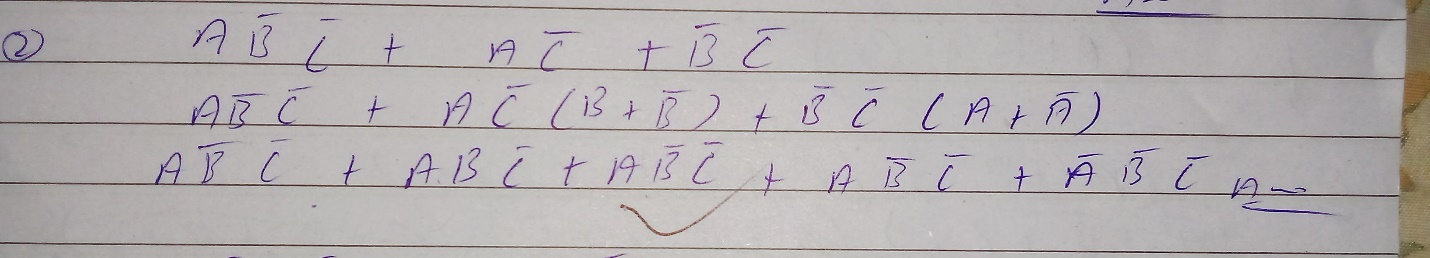 ② A B̅ C̅ + A C̅ + B̅ C̅
A B̅ C̅ + A C̅ (B + B̅) + B̅ C̅ (A + A̅)
A B̅ C̅ + A.B C̅ + A B̅ C̅ + A B̅ C̅ + A̅ B̅ C̅